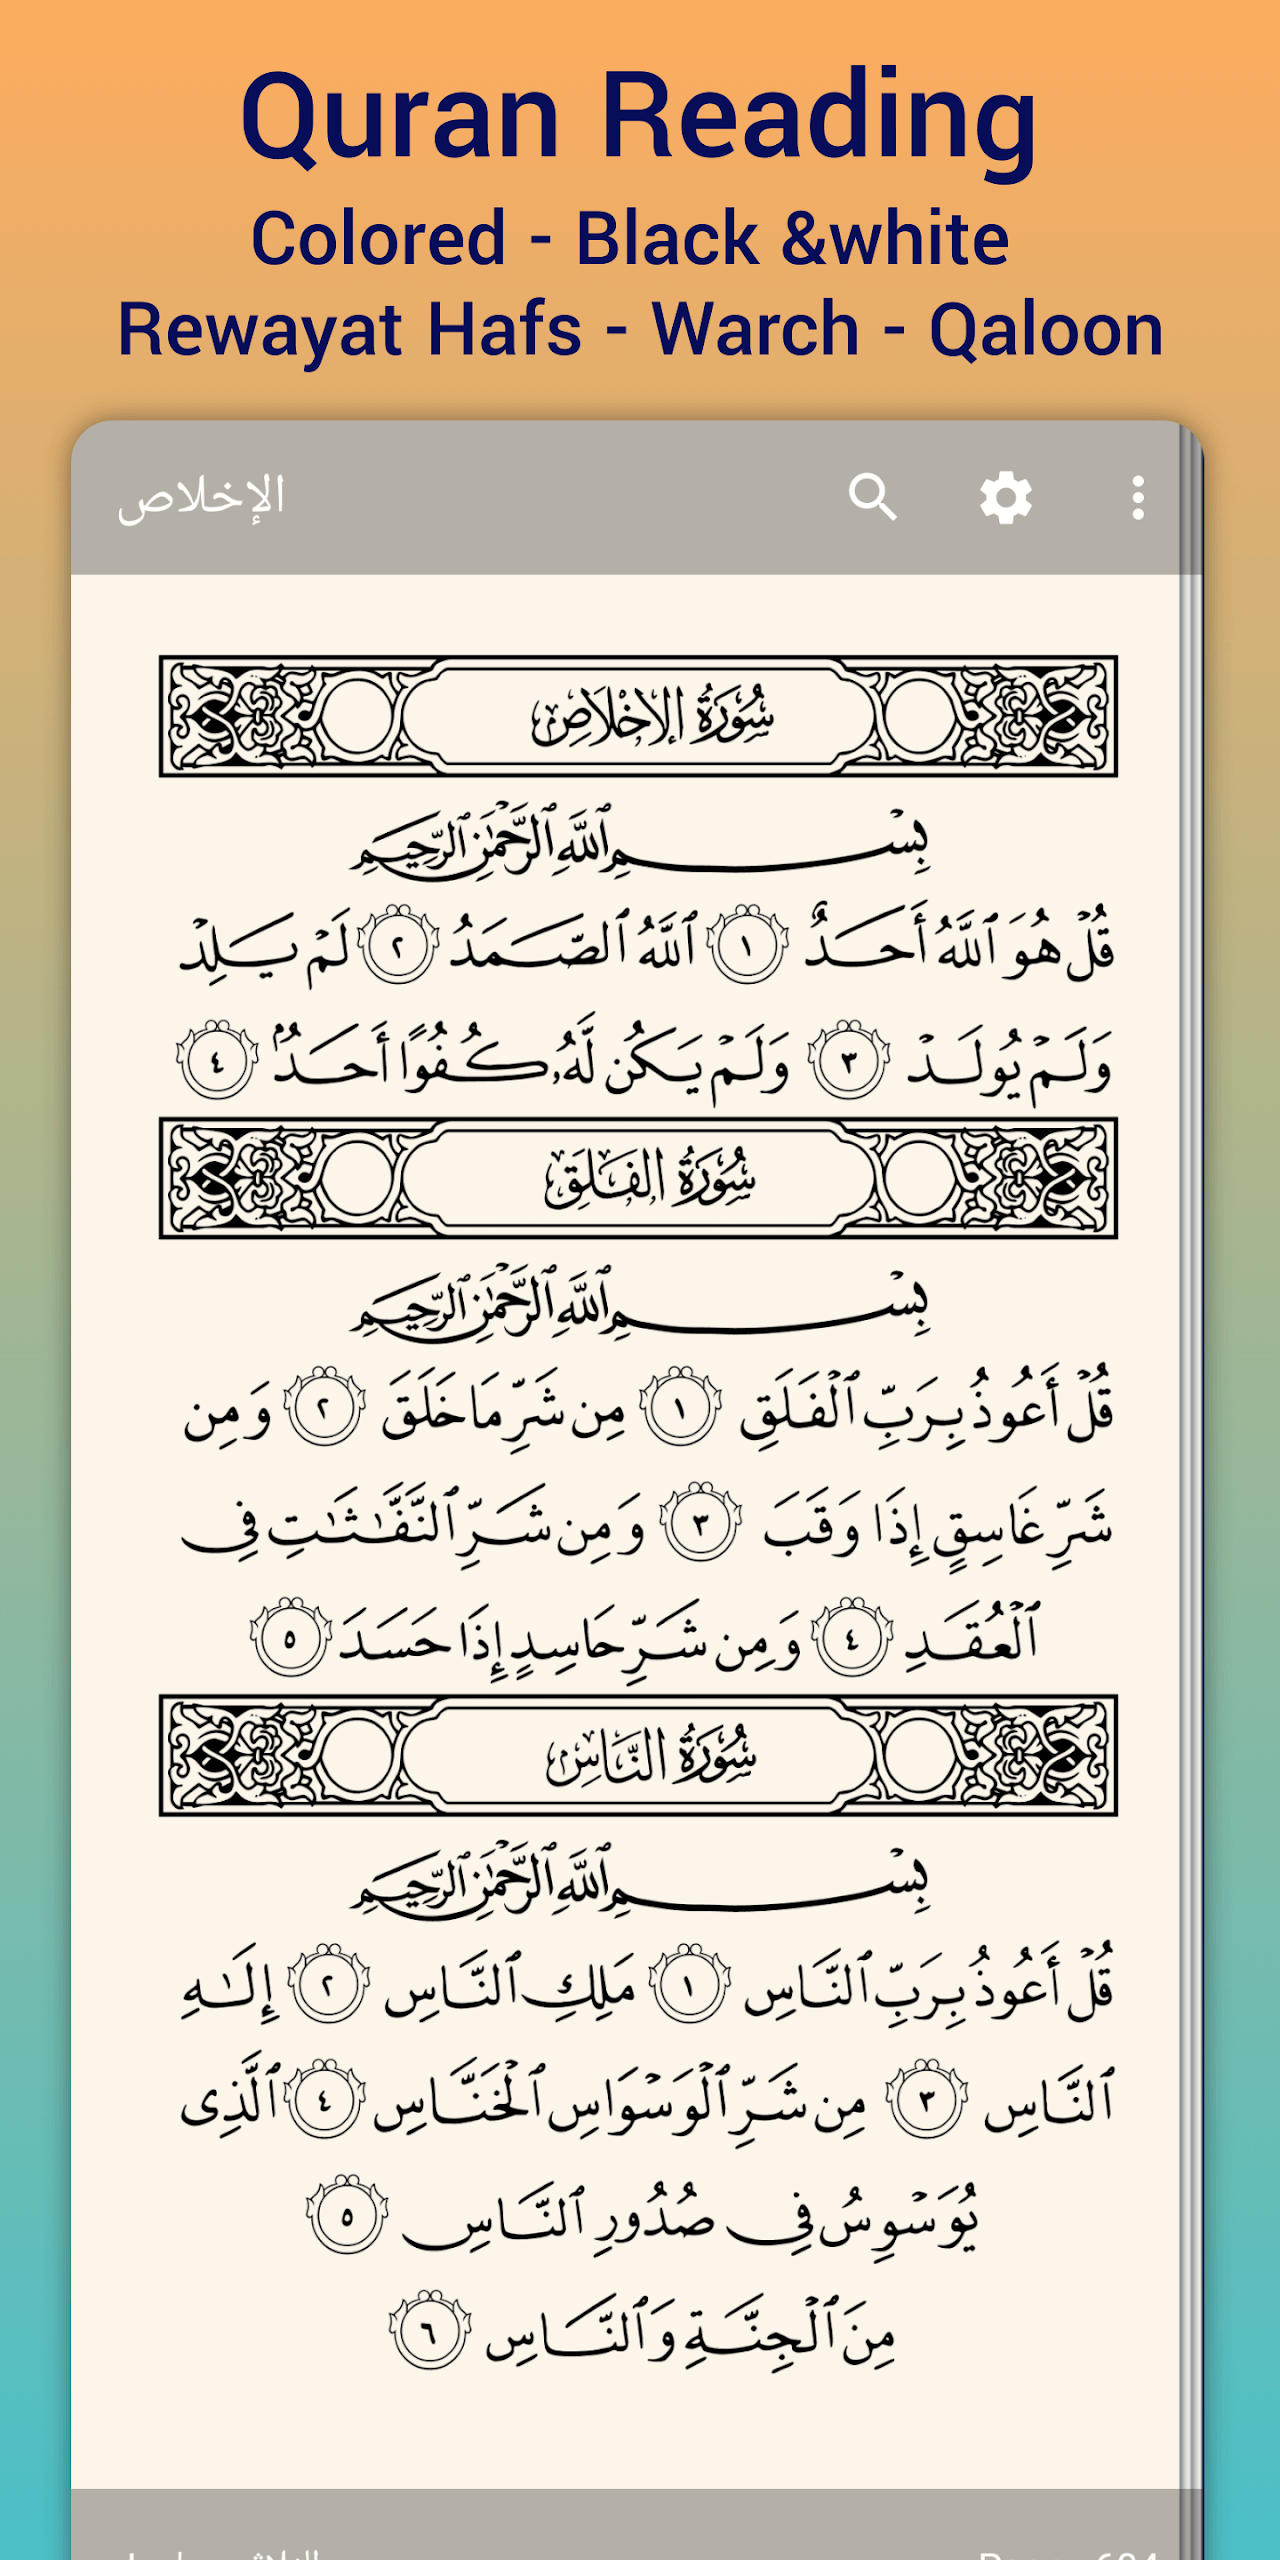 Quran Reading
Colored - Black &white
Rewayat Hafs - Warch - Qaloon
الإخلاص
سُورَةُ الإِخْلَاصِ
بِسْمِ ٱللَّهِ ٱلرَّحْمَٰنِ ٱلرَّحِيمِ
قُلْ هُوَ ٱللَّهُ أَحَدٌ ١ ٱللَّهُ ٱلصَّمَدُ ٢ لَمْ يَلِدْ
وَلَمْ يُولَدْ ٣ وَلَمْ يَكُن لَّهُۥ كُفُوًا أَحَدٌۢ ٤
سُورَةُ الفَلَقِ
بِسْمِ ٱللَّهِ ٱلرَّحْمَٰنِ ٱلرَّحِيمِ
قُلْ أَعُوذُ بِرَبِّ ٱلْفَلَقِ ١ مِن شَرِّ مَا خَلَقَ ٢ وَمِن
شَرِّ غَاسِقٍ إِذَا وَقَبَ ٣ وَمِن شَرِّ ٱلنَّفَّٰثَٰتِ فِى
ٱلْعُقَدِ ٤ وَمِن شَرِّ حَاسِدٍ إِذَا حَسَدَ ٥
سُورَةُ النَّاسِ
بِسْمِ ٱللَّهِ ٱلرَّحْمَٰنِ ٱلرَّحِيمِ
قُلْ أَعُوذُ بِرَبِّ ٱلنَّاسِ ١ مَلِكِ ٱلنَّاسِ ٢ إِلَٰهِ
ٱلنَّاسِ ٣ مِن شَرِّ ٱلْوَسْوَاسِ ٱلْخَنَّاسِ ٤ ٱلَّذِى
يُوَسْوِسُ فِى صُدُورِ ٱلنَّاسِ ٥
مِنَ ٱلْجِنَّةِ وَٱلنَّاسِ ٦